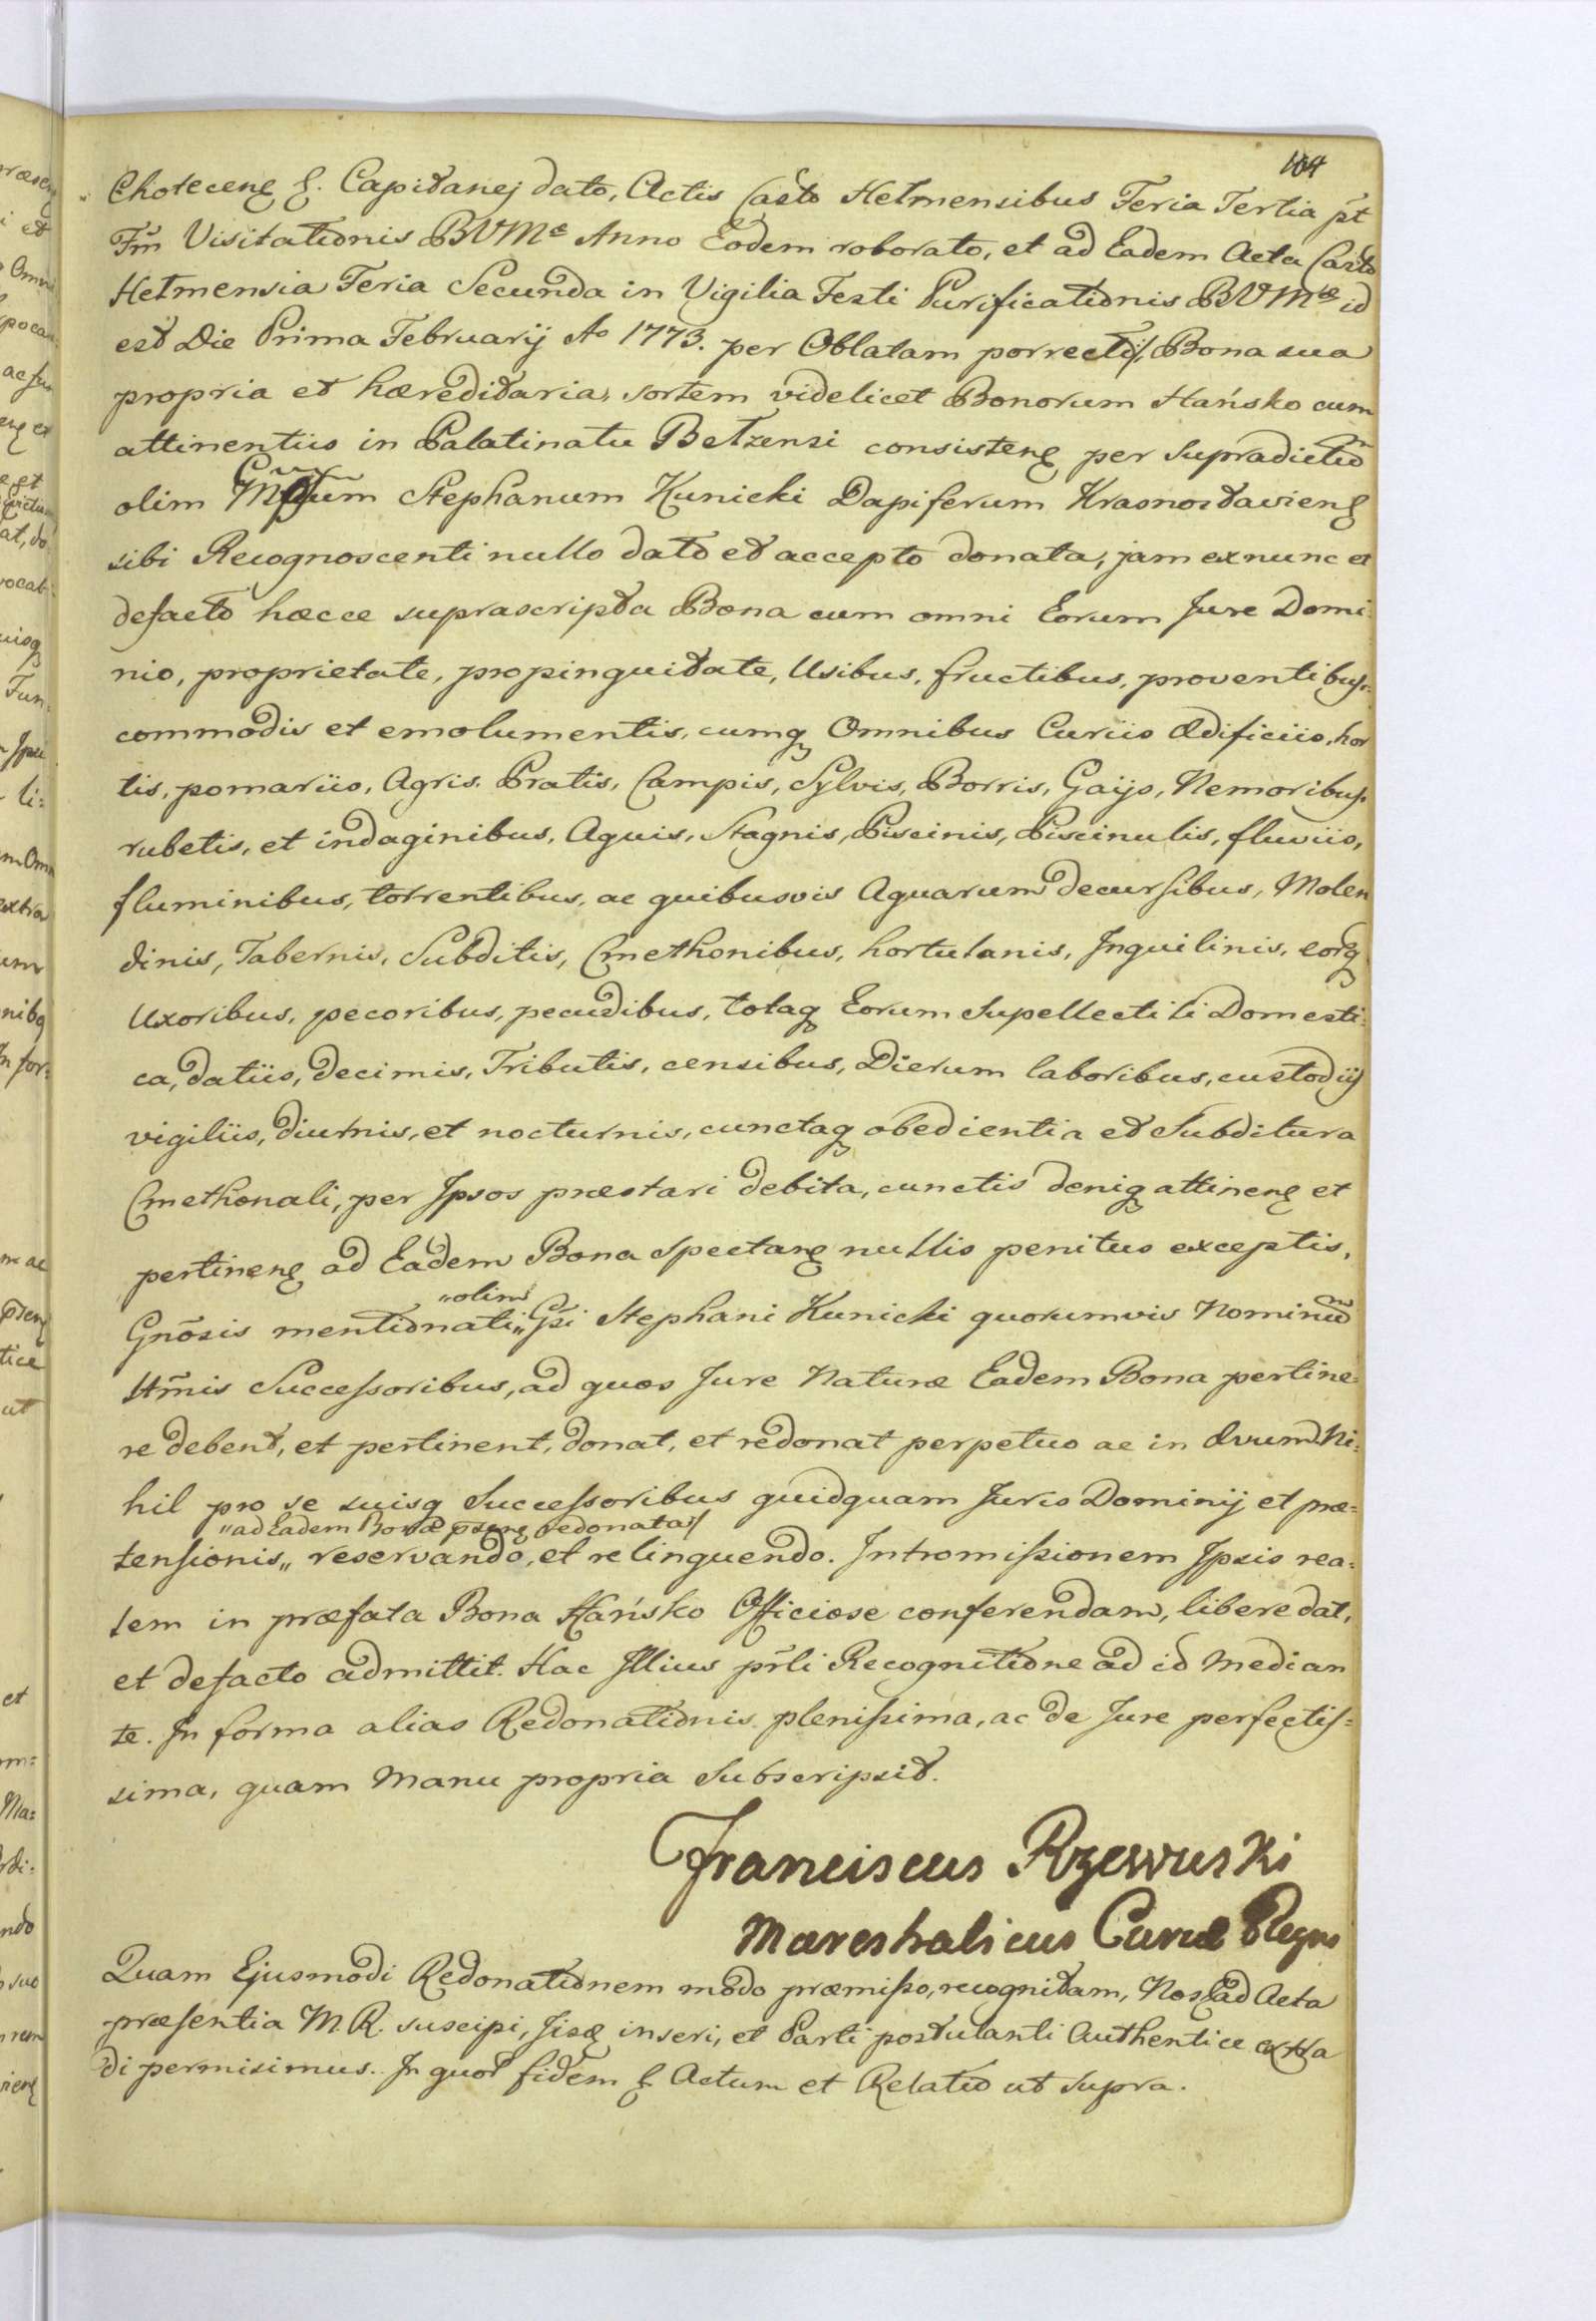 104
Chotecenꝫ ꝫ. Capitanej dato, Actis Casto Hełmensibus Feria Tertia p̃t
Fm̃ Visitationis BVMæ Anno Eodem roborato, et ad Eadem Acta Casto
Hełmensia Feria Secunda in Vigilia Festi Purificationis BVMæ id
est Die Prima Februarij Ao 1773. per Oblatam porrecti/. Bona sua
propria et hæreditaria, sortem videlicet Bonorum Hańsko cum
attinentiis in Palatinatu Bełzensi consistenꝫ per Supradictum
olim Gsum Stephanum Kunicki Dapiferum Krasnostavienꝫ
sibi Recognoscenti nullo dato et accepto donata, jam exnunc et
defacto hæcce suprascripta Bona cum omni Eorum Jure Domi:
nio, proprietate, propinquitate, Usibus, fructibus, proventibus,
commodis et emolumentis, cumq Omnibus Curiis Ædificiis, hor
tis, pomariis, Agris. Pratis, Campis, Sylvis, Borris, Gaijs, Nemoribus,
rubetis, et indaginibus, Aquis, Stagnis, Piscinis, Piscinulis, fluviis,
fluminibus, torrentibus, ac quibusvis Aquarum decursibus, Molen
dinis, Tabernis, Subditis, Cmethonibus, hortulanis, Inquilinis, eorq
Uxoribus, pecoribus, pecudibus, totaq Eorum Supellectili Domesti:
ca, datiis, decimis, Tributis, censibus, Dierum laboribus, custodiis
vigiliis, diurnis, et nocturnis, cunctaq obedientia et Subditura
Cmethonali, per Ipsos præstari debita, cunctis deniq attinenꝫ et
pertinenꝫ ad Eadem Bona Spectanꝫ nullis penitus exceptis,
Gnõsis mentionati „olim„ Gsi Stephani Kunicki quorumvis Nominum
Hm̃is Successoribus, ad quos Jure Naturæ Eadem Bona pertine:
re debent, et pertinent, donat, et redonat perpetuo ac in Ævum. Ni:
hil pro se suisq Successoribus quidquam Juris Dominij et præ=
„ad Eadem Bona p̃senꝫ redonata/
tensionis„ reservando, et relinquendo. Intromissionem Ipsis rea=
lem in præfata Bona Hańsko Officiose conferendam, libere dat,
et defacto admittit. Hac Illius pr̃li Recognitione ad id Median
te. In forma alias Redonationis plenissima, ac de Jure perfectis=
sima, quam Manu propria Subscripsit.
Franciscus Rzewuski
Mareshalicus Curiæ Regni
Quam Ejusmodi Redonationem modo præmisso, recognitam, Nos ad Acta
præsentia M. R. suscipi, Iisq inseri, et Parti postulanti Authentice extra
di permisimus. In quor fidem ꝫ Actum et Relatio ut supra.